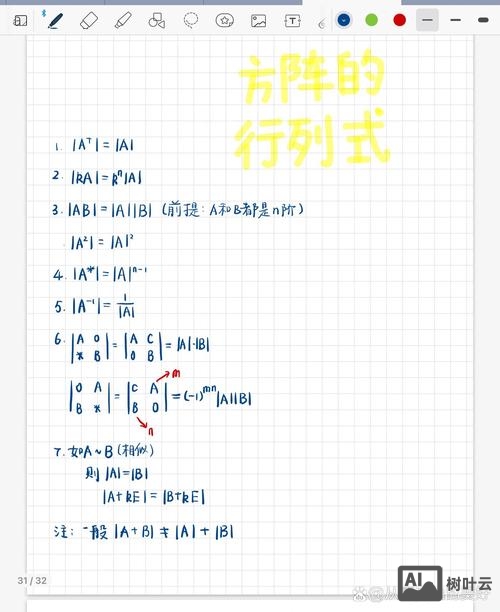 方阵的
行列式
1. |Aᵀ| = |A|
2. |kA| = kⁿ|A|
3. |AB| = |A||B| (前提: A和B都是n阶)
|A²| = |A|²
4. |A*| = |A|ⁿ⁻¹
5. |A⁻¹| = 1/|A|
6. |A 0; * B| = |A C; 0 B| = |A|·|B|
m
|0 A; B *| = |C A; B 0| = (-1)ᵐⁿ|A||B|
n
7. 如A~B (相似)
则 |A| = |B|
|A+kE| = |B+kE|
注: 一般 |A+B| ≠ |A| + |B|
31 / 32
AI
树叶云